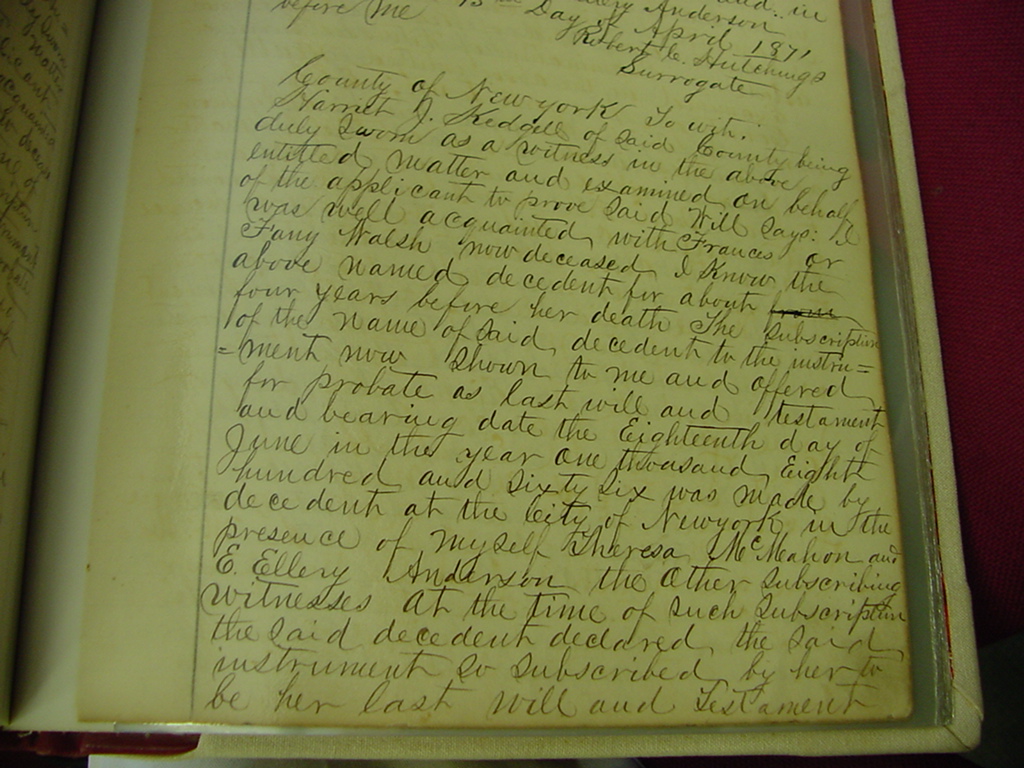 Ellery Anderson
before me 13th Day of April 1871
Robert C. Hutchings
Surrogate
County of New york To wit:
Harriet J. Kedgell of said County being
duly sworn as a witness in the above
entitled matter and examined on behalf
of the applicant to prove said Will says: I
was well acquainted with Frances or
Fany Walsh now deceased I Know the
above named decedent for about
four years before her death The subscription
of the name of said decedent to the instru=
=ment now shown to me and offered
for probate as last will and testament
and bearing date the Eighteenth day of
June in the year One thousand Eight
hundred and sixty six was made by
decedent at the City of New york in the
presence of myself Theresa McMahon and
E. Ellery Anderson the other subscribing
witnesses at the time of such subscription
the said decedent declared the said
instrument so subscribed by her to
be her last will and Testament